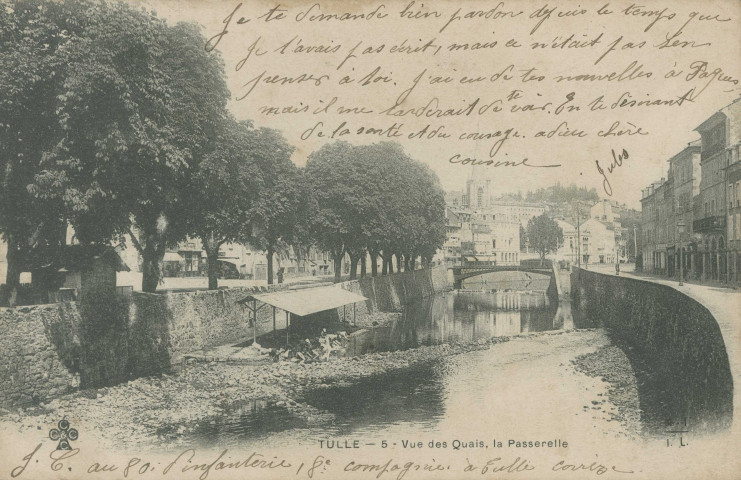 Je te demande bien pardon depuis le temps que
Je t'avais pas écrit, mais ce n'était pas sen
penser à toi. J'ai eu de tes nouvelles à Paques
mais il me tarderait de te voir. En te désirant
de la santé et du courage. adieu chère
cousine
Jules
TULLE — 5 - Vue des Quais, la Passerelle
I. L.
J. C. au 80. d'infanterie, 8e compagnie à Tulle corrèze